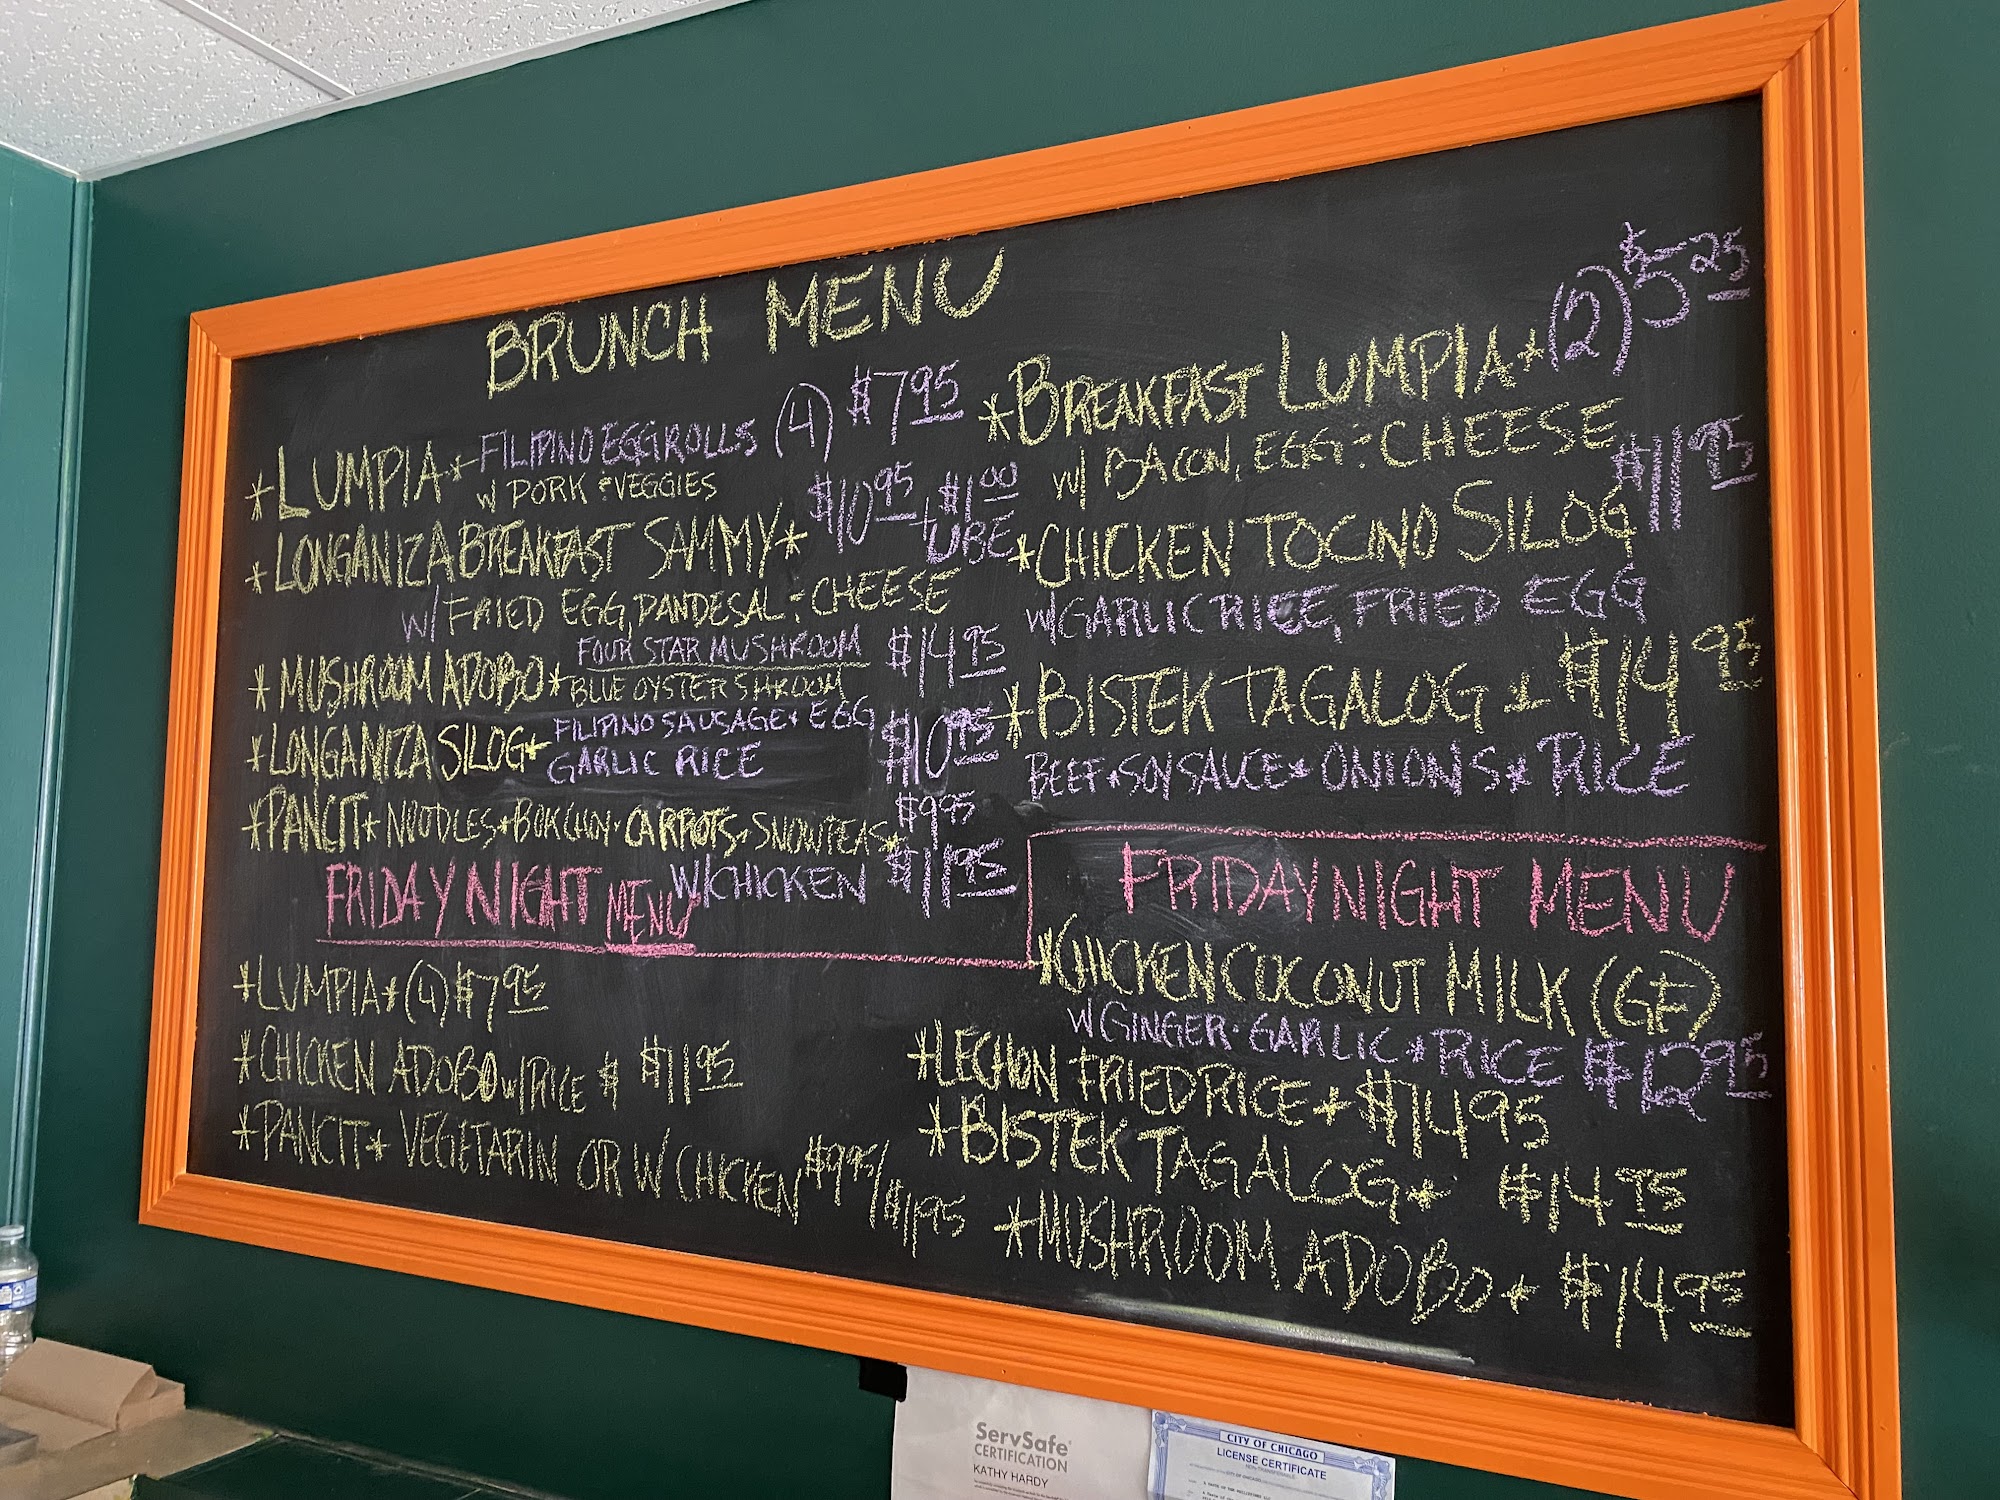 BRUNCH MENU
*LUMPIA* FILIPINO EGGROLLS (4) $7.95
w/ PORK & VEGGIES
*LONGANIZA BREAKFAST SAMMY* $10.95 + $1.00 UBE
w/ FRIED EGG, PANDESAL & CHEESE
*MUSHROOM ADOBO* FOUR STAR MUSHROOM $14.95
BLUE OYSTER SHROOM
*LONGANIZA SILOG* FILIPINO SAUSAGE + EGG $10.95
GARLIC RICE
*PANCIT* NOODLES * BOK CHOY * CARROTS * SNOWPEAS * $9.95
W/CHICKEN $11.95
*BREAKFAST LUMPIA* (2) $5.25
w/ BACON, EGG & CHEESE
*CHICKEN TOCINO SILOG $11.95
w/GARLIC RICE, FRIED EGG
*BISTEK TAGALOG * $14.95
BEEF * SOY SAUCE * ONIONS * RICE
FRIDAY NIGHT MENU
*LUMPIA* (4) $7.95
*CHICKEN ADOBO w/RICE $ $11.95
*PANCIT* VEGETARIN OR W/CHICKEN $9.95/$11.95
FRIDAY NIGHT MENU
*CHICKEN COCONUT MILK (GF)
w/GINGER * GARLIC * RICE $12.95
*LECHON FRIED RICE * $14.95
*BISTEK TAGALOG * $14.95
*MUSHROOM ADOBO * $14.95
ServSafe®
CERTIFICATION
KATHY HARDY
CITY OF CHICAGO
LICENSE CERTIFICATE
NON-TRANSFERABLE